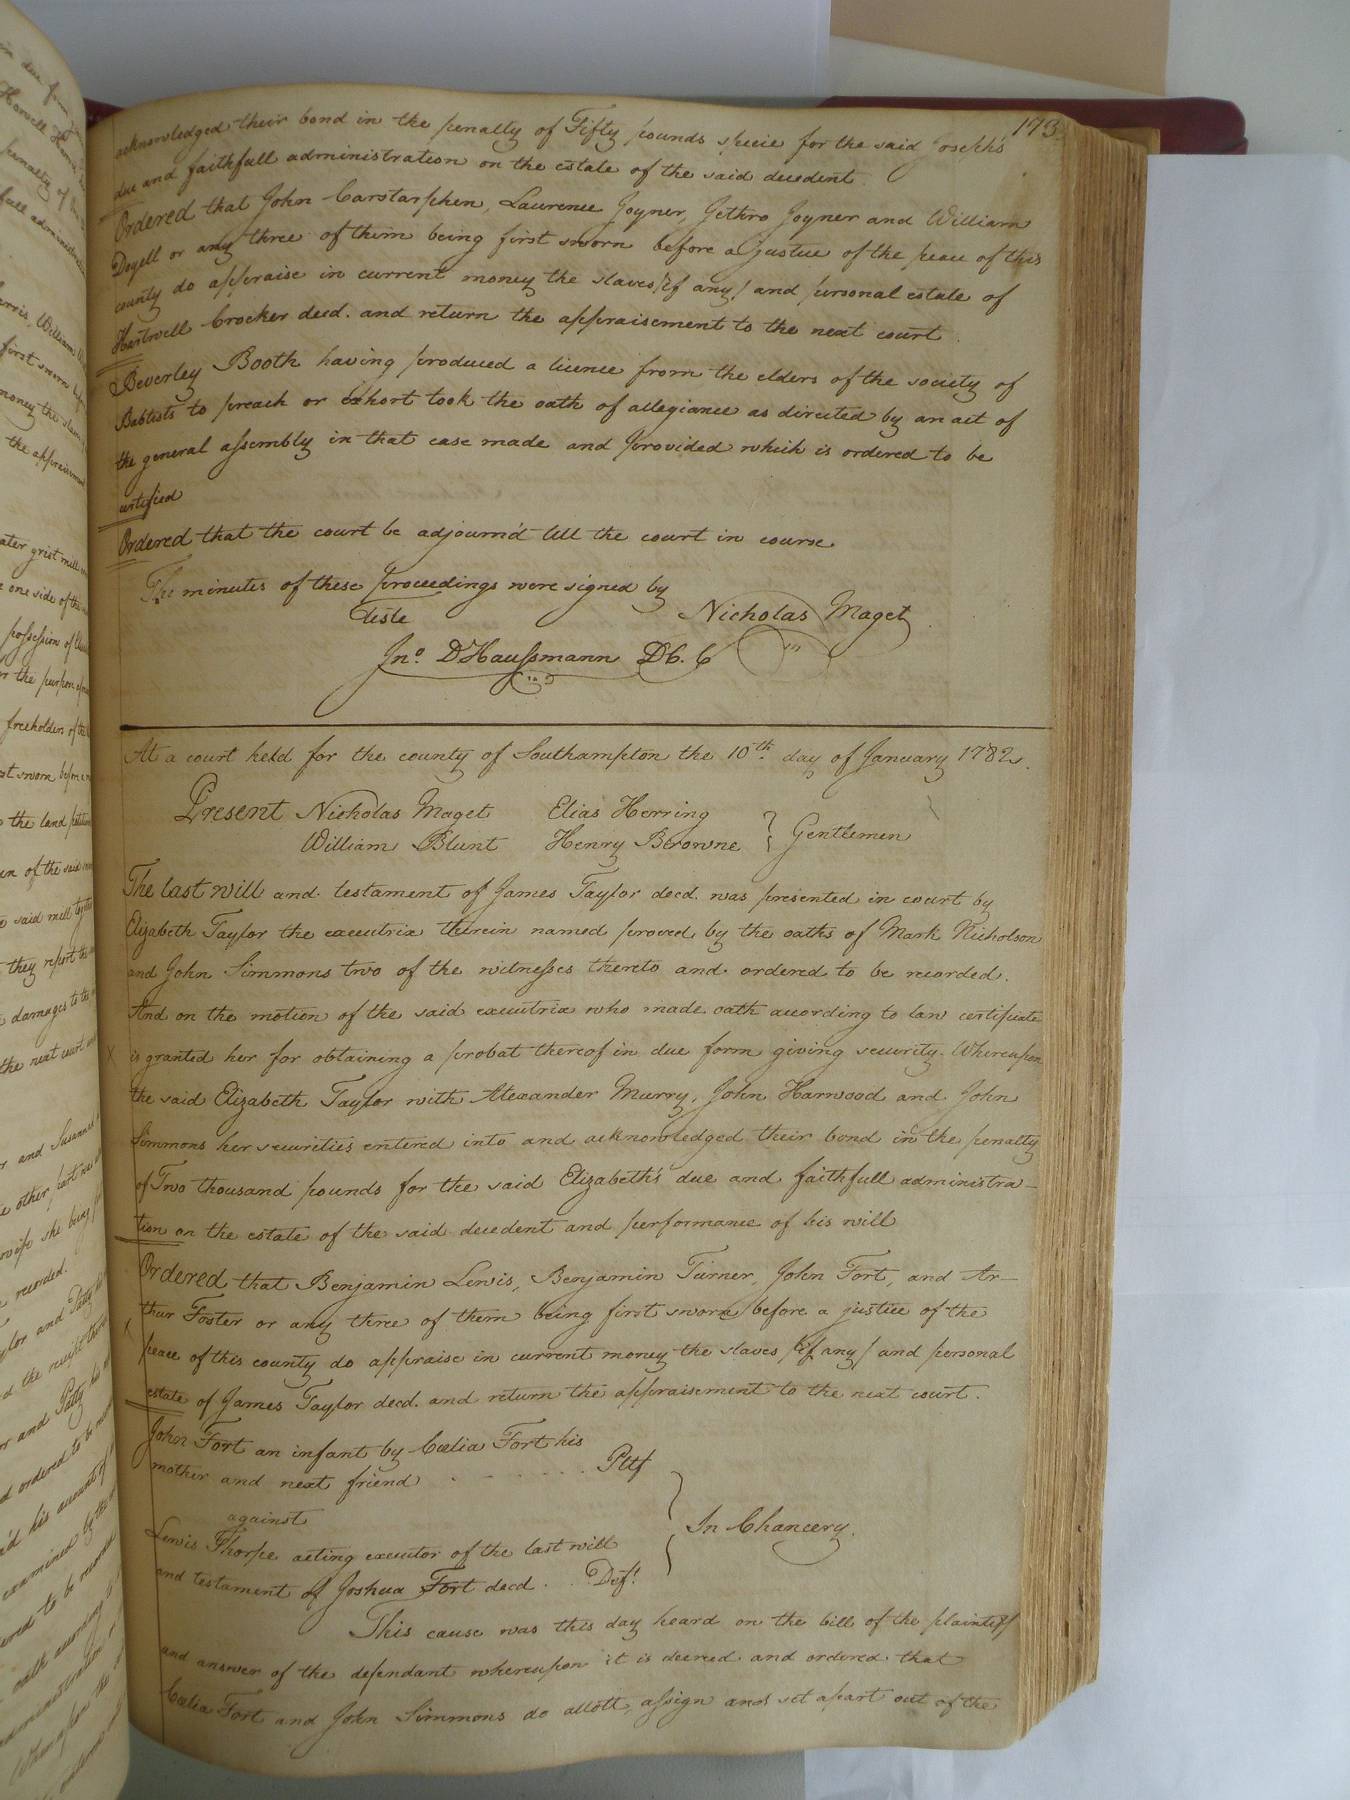 173
acknowledged their bond in the penalty of Fifty pounds specie for the said Joseph's
due and faithfull administration on the estate of the said decedent
Ordered that John Carstarphen, Laurence Joyner, Jethro Joyner and William
Doyell or any three of them being first sworn before a justice of the peace of this
county do appraise in current money the slaves /if any/ and personal estate of
Hartwell Crocker decd. and return the appraisement to the next court
Beverley Booth having produced a licence from the elders of the society of
Babtists to preach or exhort took the oath of allegiance as directed by an act of
the general assembly in that case made and provided which is ordered to be
certified
Ordered that the court be adjourn'd till the court in course
The minutes of these proceedings were signed by
Teste Nicholas Maget
Jno. DHaussmann DC. C
At a court held for the county of Southampton the 10th. day of January 1782.
Present Nicholas Maget Elias Herring
William Blunt Henry Browne } Gentlemen
The last will and testament of James Taylor decd. was presented in court by
Elizabeth Taylor the executrix therein named proved by the oaths of Mark Nicholson
and John Simmons two of the witnesses thereto and ordered to be recorded.
And on the motion of the said executrix who made oath according to law certificate
is granted her for obtaining a probat thereof in due form giving security. Whereupon
the said Elizabeth Taylor with Alexander Murry, John Harwood and John
Simmons her securities entered into and acknowledged their bond in the penalty
of Two thousand pounds for the said Elizabeth's due and faithfull administra-
tion on the estate of the said decedent and performance of his will
Ordered that Benjamin Lewis, Benjamin Turner, John Fort, and Ar-
thur Foster or any three of them being first sworn before a justice of the
peace of this county do appraise in current money the slaves /if any/ and personal
estate of James Taylor decd. and return the appraisement to the next court.
John Fort an infant by Cœlia Fort his
mother and next friend . - - - - . . Pltf
against
In Chancery.
Lewis Thorpe acting executor of the last will
and testament of Joshua Fort decd . . Deft.
This cause was this day heard on the bill of the plaintiff
and answer of the defendant whereupon it is decreed and ordered that
Cœlia Fort and John Simmons do allott, assign and set apart out of the